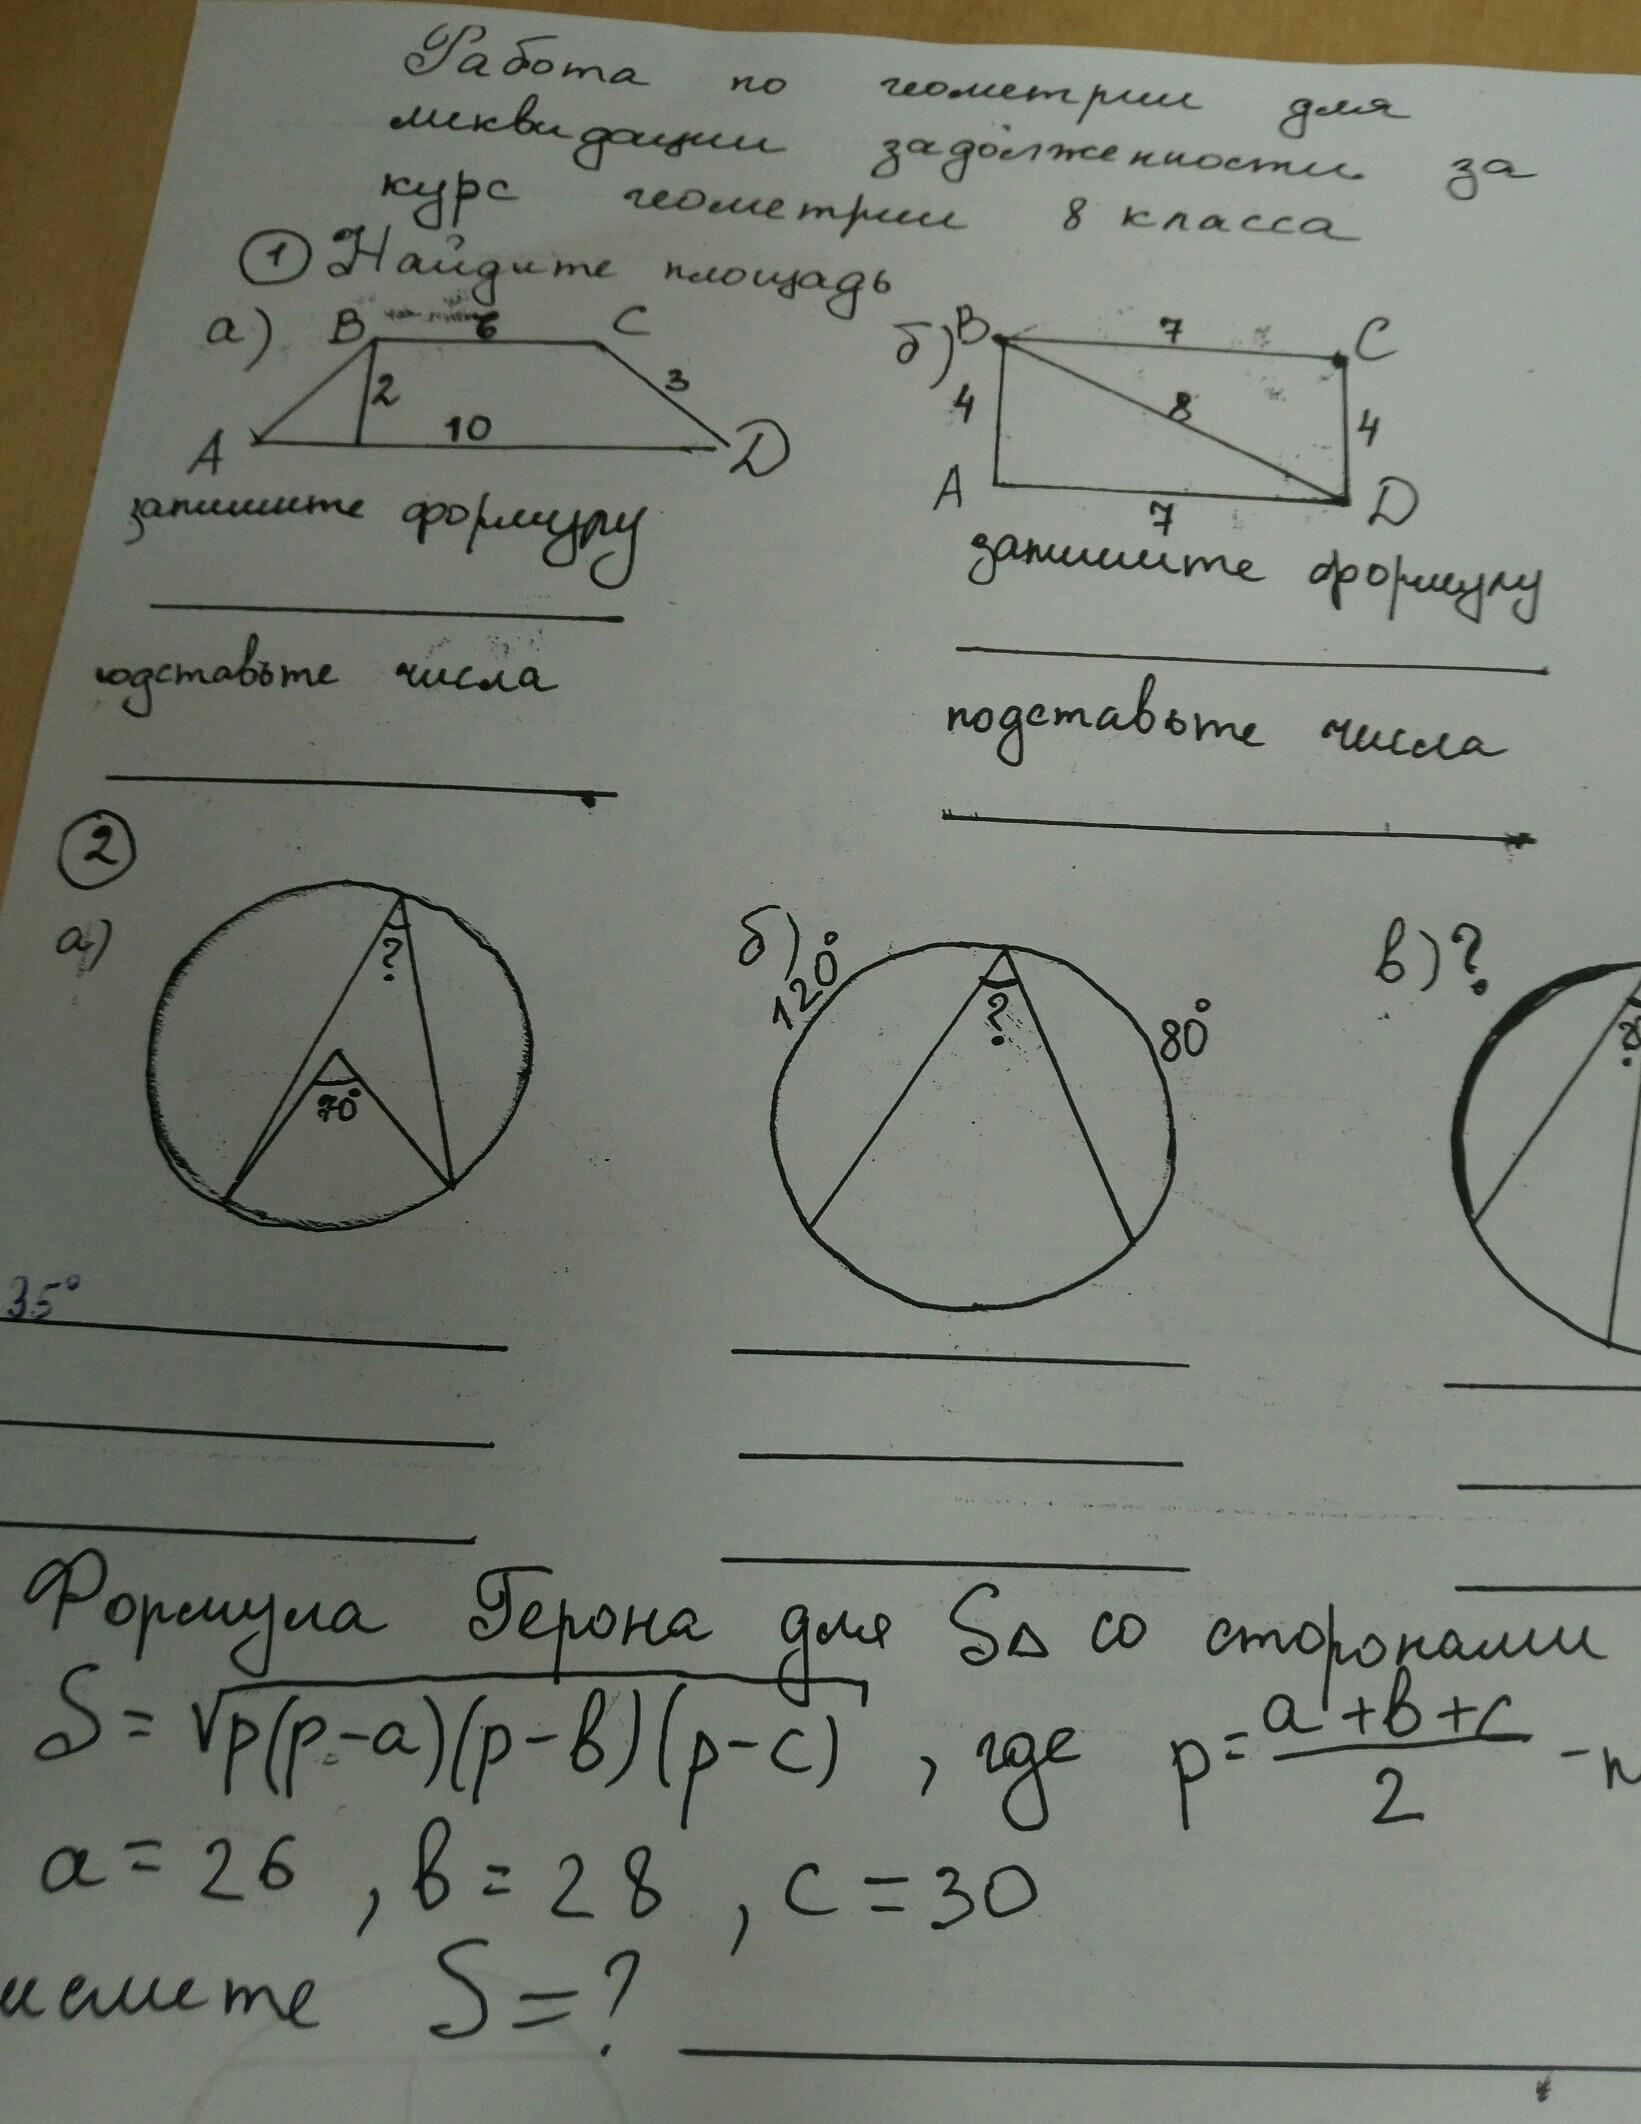 Работа по геометрии для
ликвидации задолженности за
курс геометрии 8 класса
1 Найдите площадь
а) B 6 C
2 3
A 10 D
запишите формулу
подставьте числа
б) B 7 C
4 8 4
A 7 D
запишите формулу
подставьте числа
2
а) ?
70°
35°
б) 120° ? 80°
в) ?
Формула Герона для S△ со сторонами
S = √p(p-a)(p-b)(p-c) , где p = a+b+c / 2 -
a = 26 , b = 28 , c = 30
S = ?